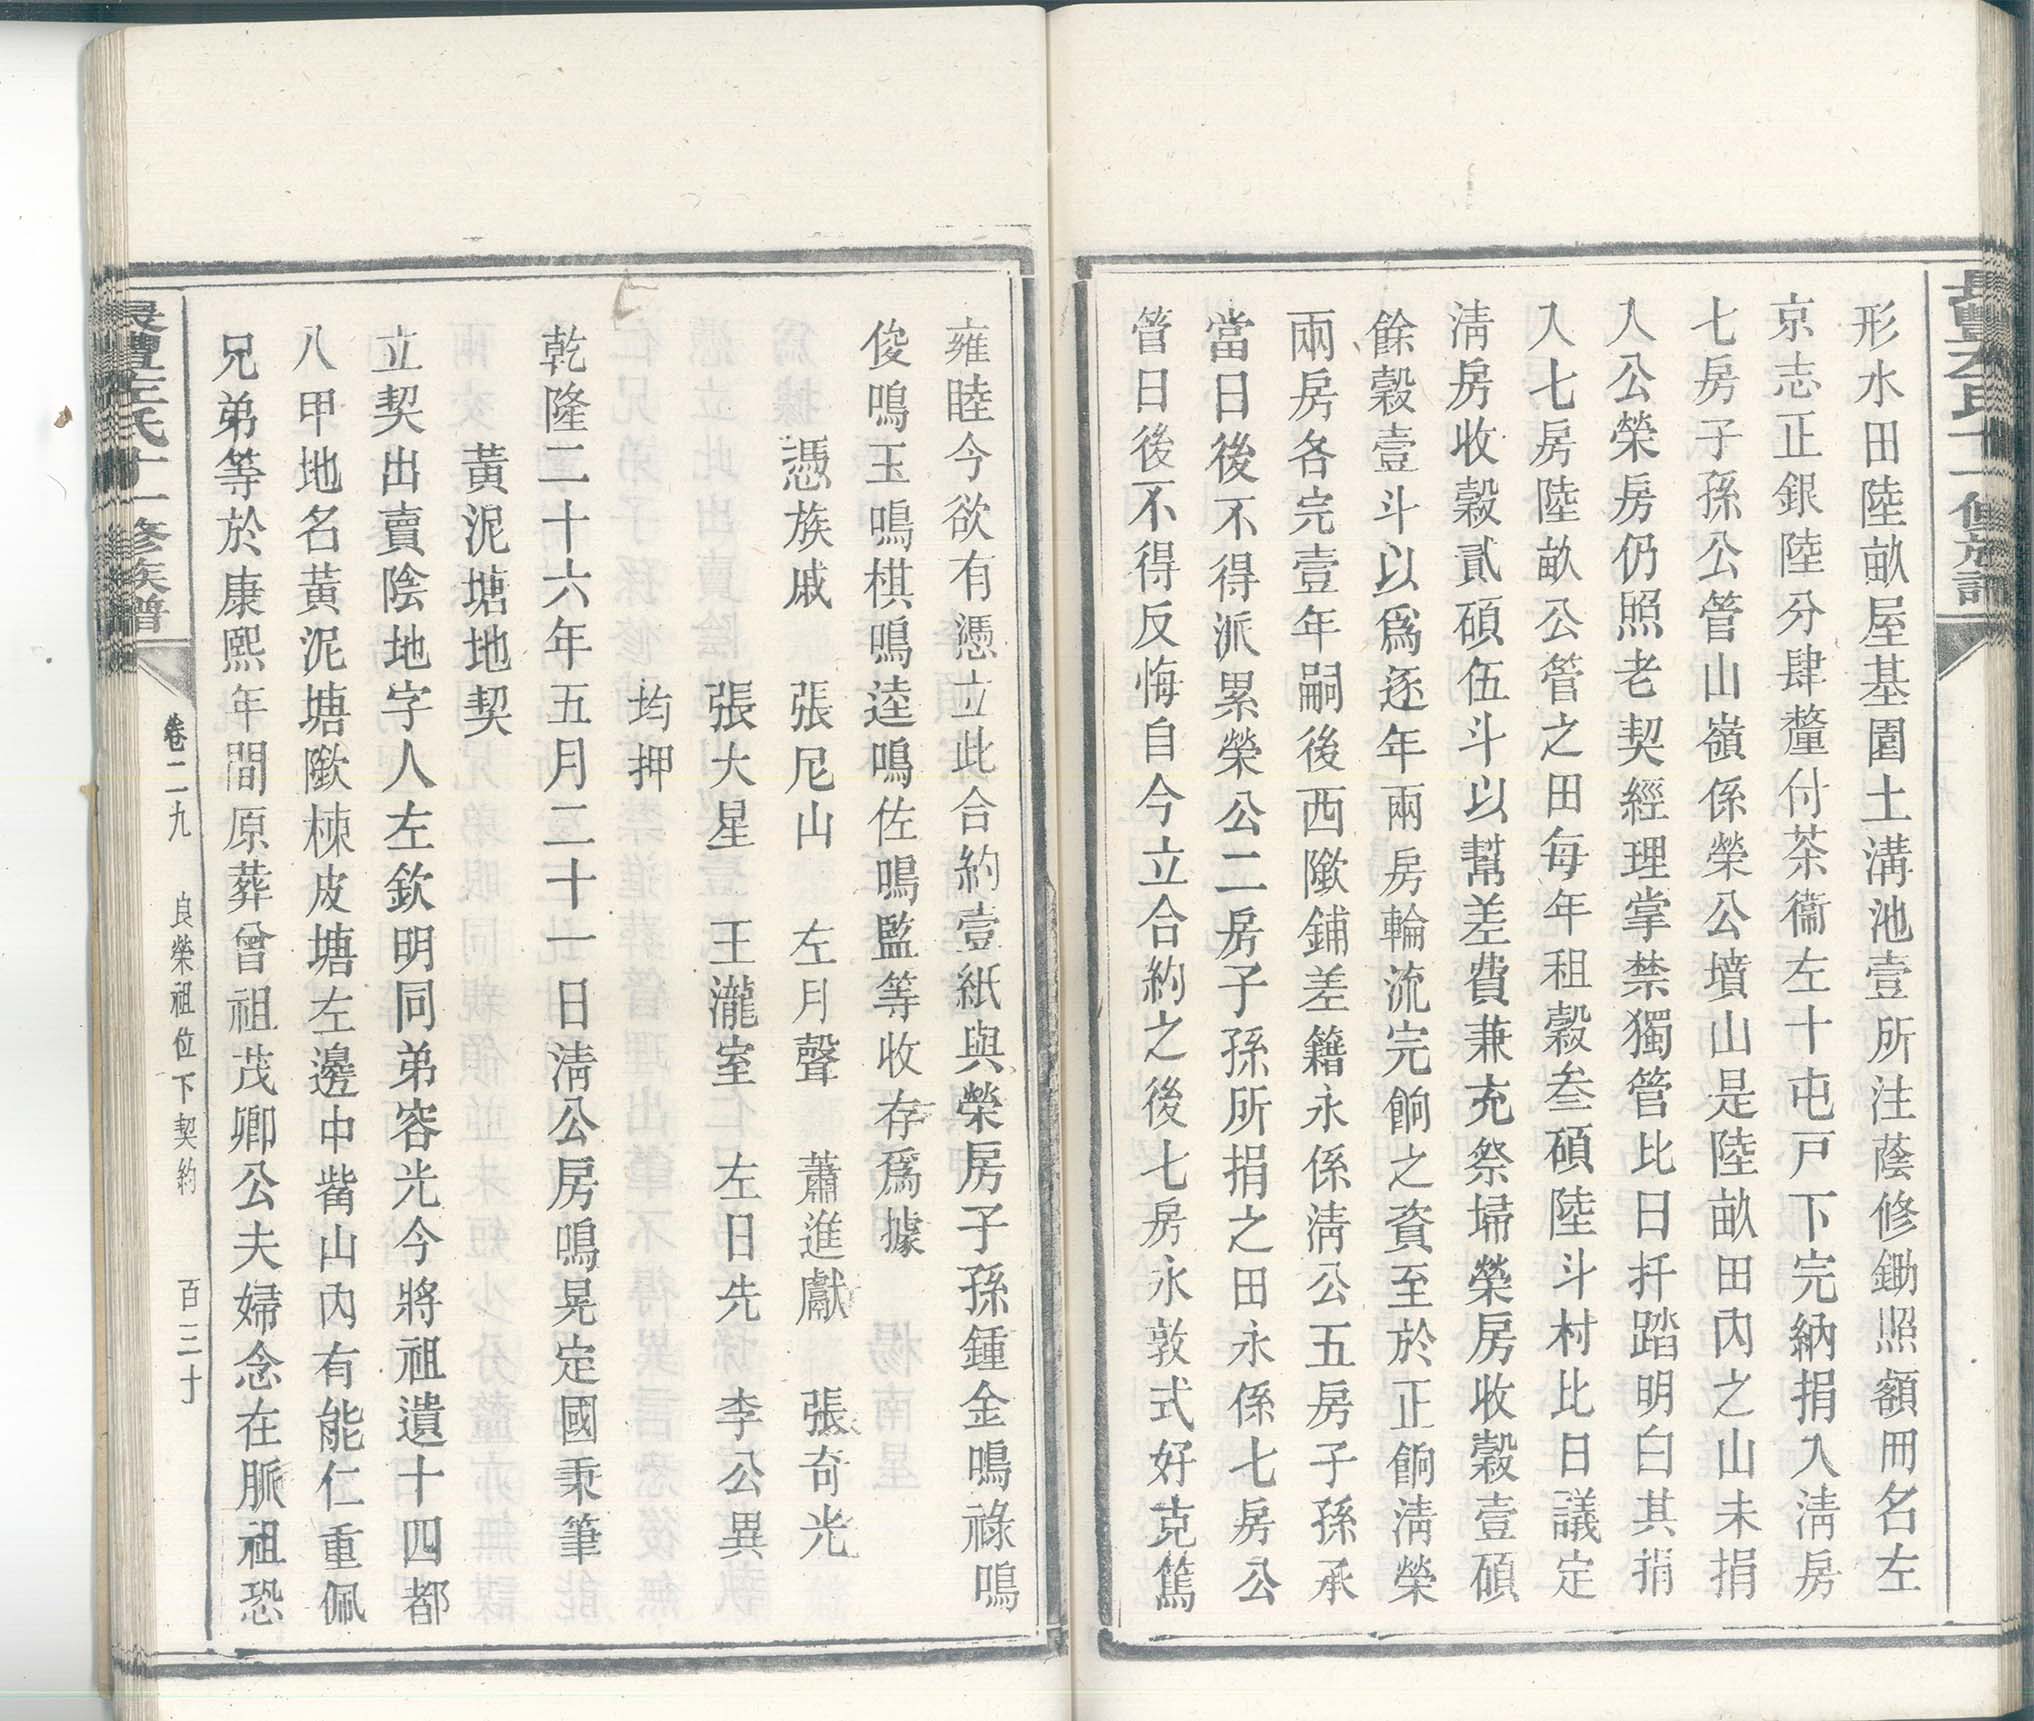 形水田陸畝屋基園土溝池壹所注蔭修鋤照額冊名左
京志正銀陸分肆釐付茶衞左十屯戸下完納捐入淸房
七房子孫公管山嶺係榮公墳山是陸畝田內之山未捐
入公榮房仍照老契經理掌禁獨管比日扦踏明白其捐
入七房陸畝公管之田每年租穀叁碩陸斗村比日議定
淸房收穀貳碩伍斗以幫差費兼充祭埽榮房收穀壹碩
餘穀壹斗以爲逐年兩房輪流完餉之資至於正餉淸榮
兩房各完壹年嗣後西隞鋪差籍永係淸公五房子孫承
當日後不得派累榮公二房子孫所捐之田永係七房公
管日後不得反悔自今立合約之後七房永敦式好克篤
雍睦今欲有憑立此合約壹紙與榮房子孫鍾金鳴祿鳴
俊鳴玉鳴棋鳴逵鳴佐鳴監等收存爲據
憑族戚 張尼山 左月聲 蕭進獻 張奇光
張大星 王瀧室 左日先 李公異
均押
乾隆二十六年五月二十一日淸公房鳴晃定國秉筆
黃泥塘地契
立契出賣陰地字人左欽明同弟容光今將祖遺十四都
八甲地名黃泥塘隞楝皮塘左邊中嵛山內有能仁重佩
兄弟等於康熙年間原葬曾祖茂卿公夫婦念在脈祖恐
卷二九 良榮祖位下契約 百三十
左氏十一修族譜